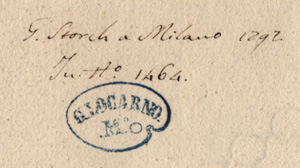 G. Storck a Milano 1797.
In. Ho. 1464.
G. LOCARNO.
M.o